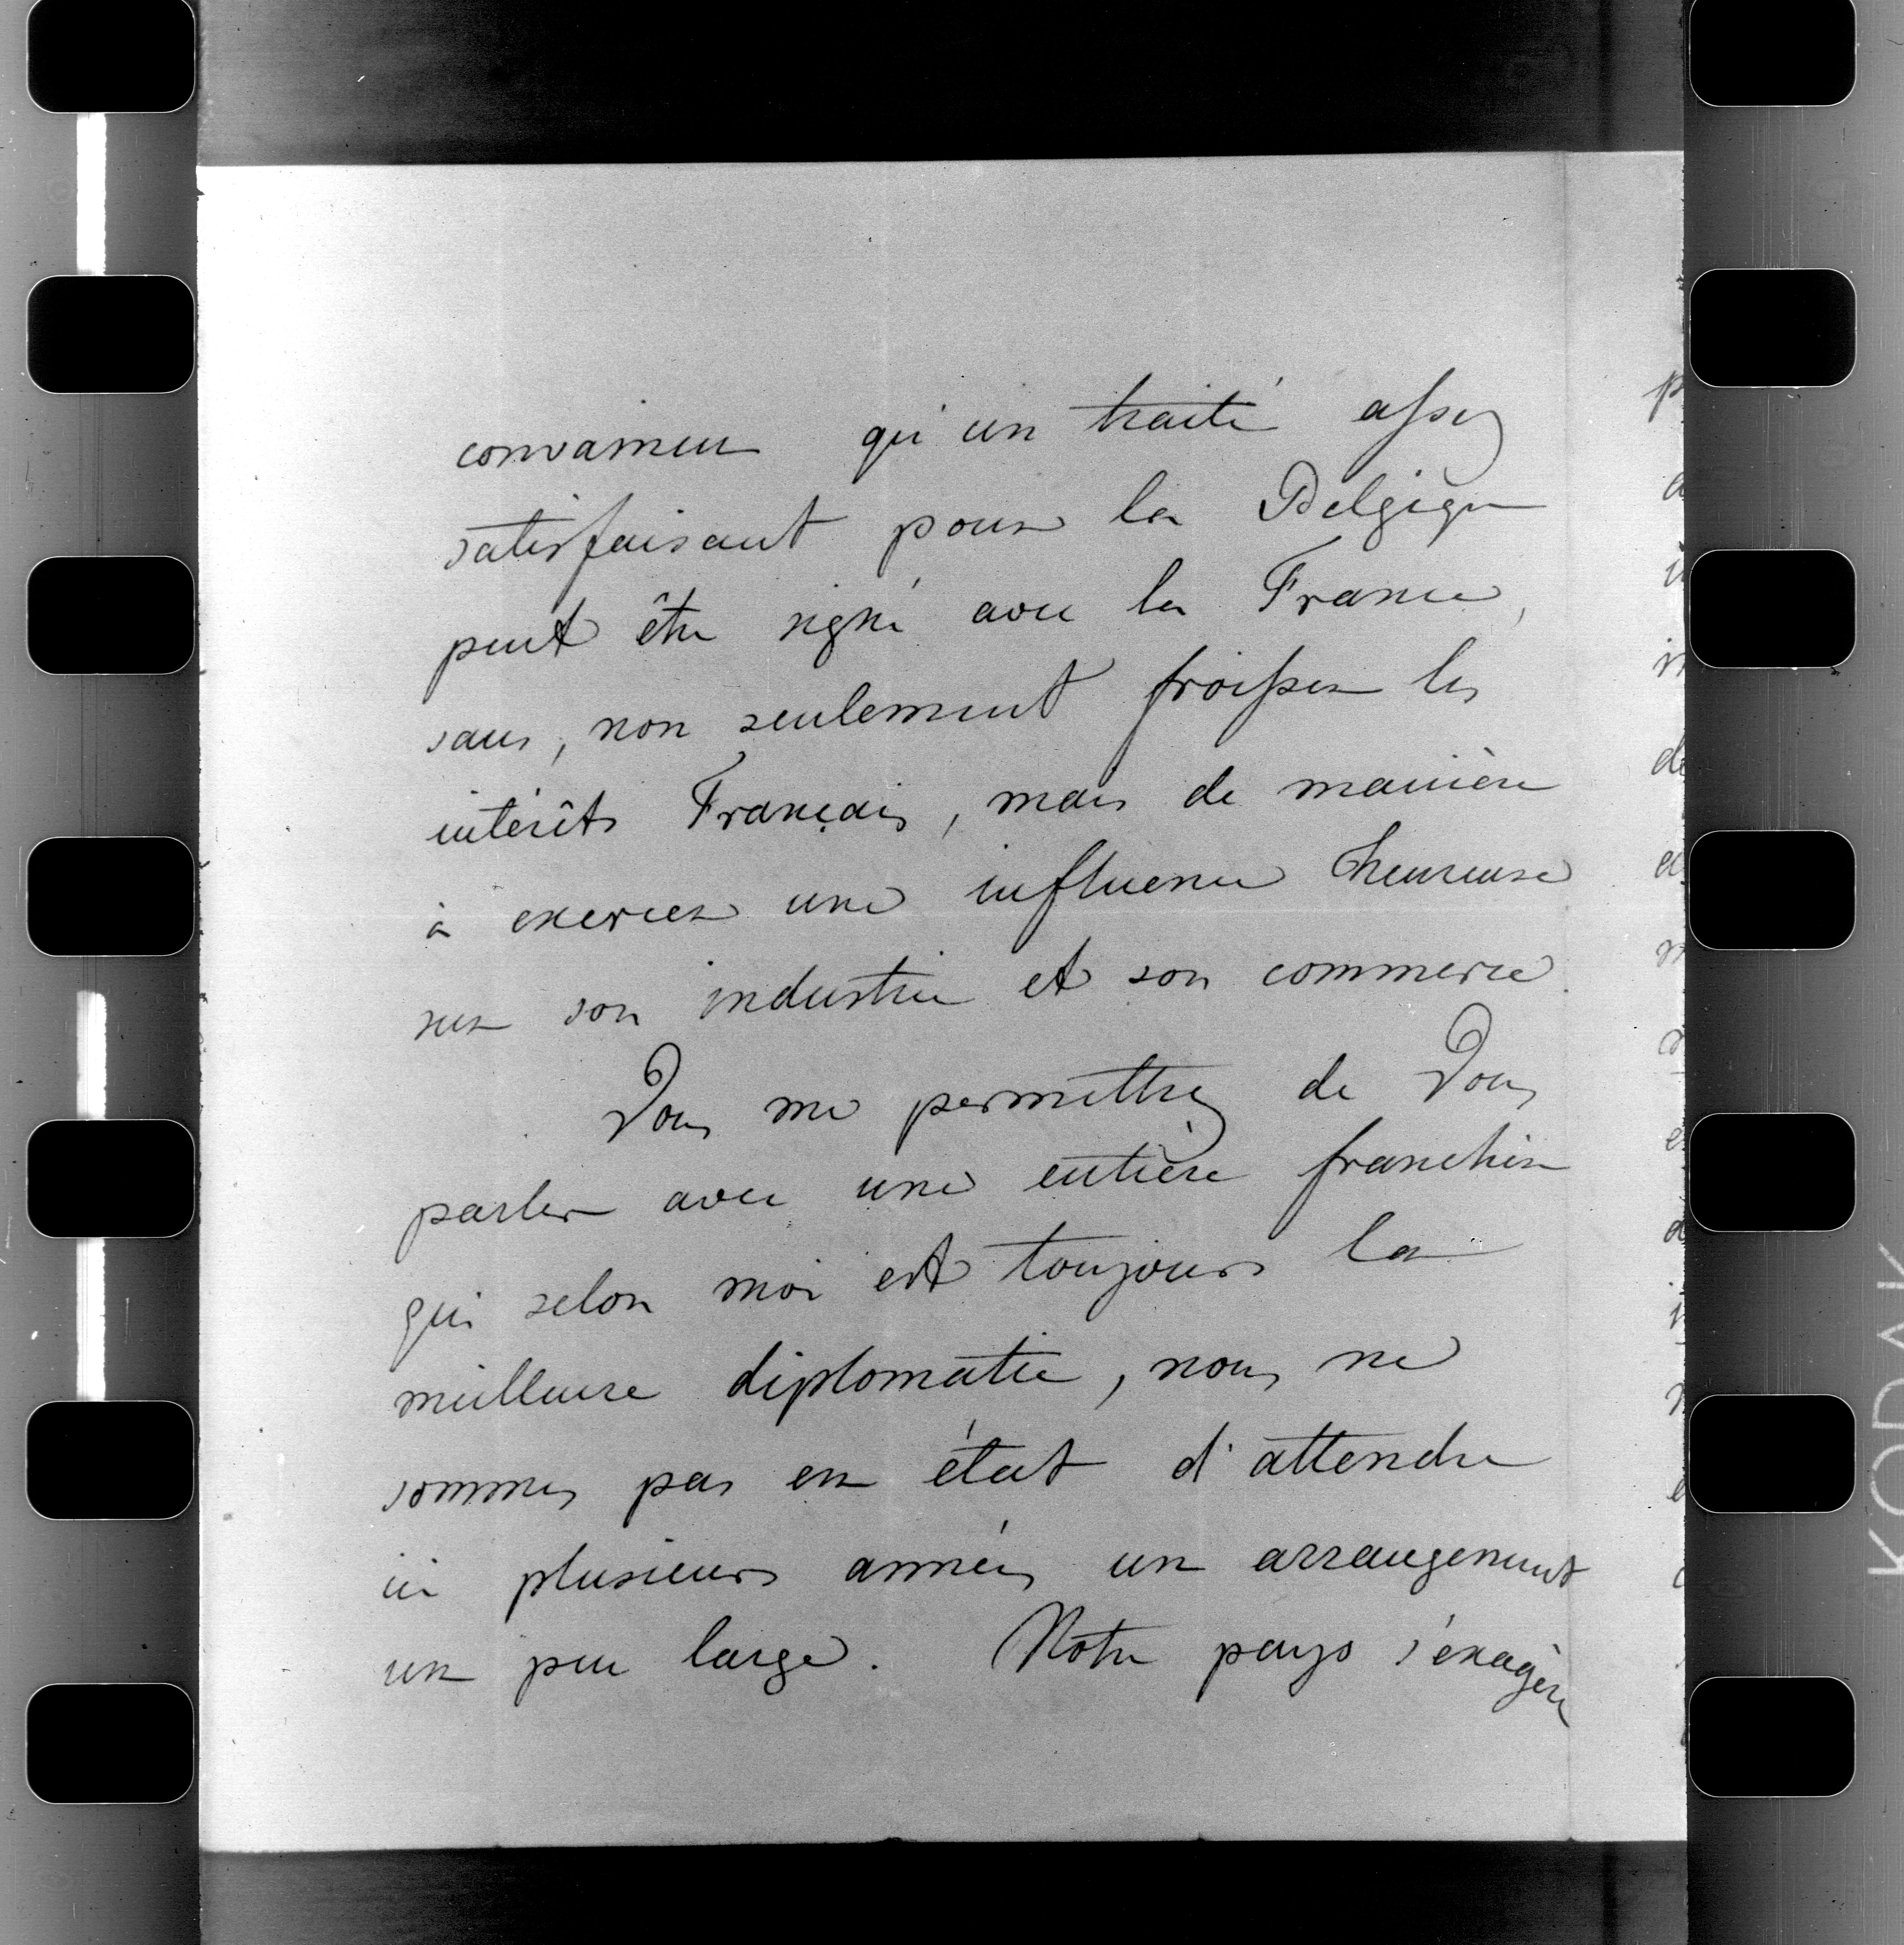 convaincu qu'un traité assez
satisfaisant pour la Belgique
peut être signé avec la France,
sans, non seulement froisser les
intérêts Français, mais de manière
à exercer une influence heureuse
sur son industrie et son commerce.
Vous me permettrez de Vous
parler avec une entière franchise
qui selon moi est toujours la
meilleure diplomatie, nous ne
sommes pas en état d'attendre
ici plusieurs années un arrangement
un peu large. Notre pays s'exagère
KODAK